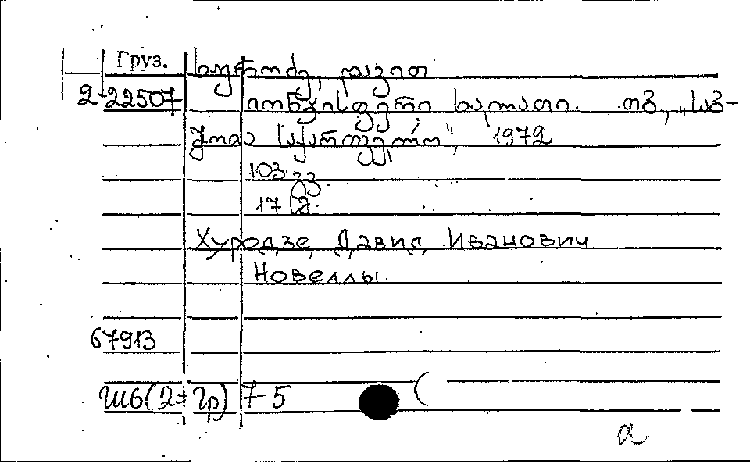 Груз.
ხუროძე, დავით
2-22507 იონჯისფერი საღამო. თბ., „საბ-
ჭოთა საქართველო", 1972
103 გვ.
17 კ.
Хуродзе, Давид Иванович
Новеллы.
67913
Ш6(2=Гр)7-5
a